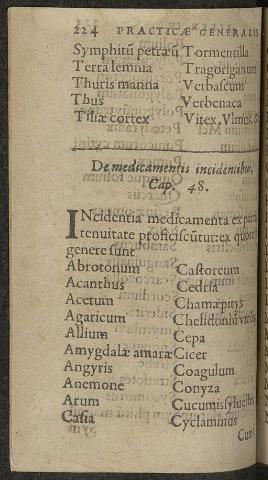 224 PRACTICÆ GENERALIS
Symphitū petræū Tormentilla
Terra lemnia Tragoriganum
Thuris manna Verbascum
Thus Verbenaca
Tiliæ cortex Vitex. Vlmus.
De medicamentis incidentibus,
Cap. 48.
INcidentia medicamenta ex
tenuitate proficiscūtur: ex quorū
genere sunt
Abrotonum Castoreum
Acanthus Cedria
Acetum Chamæpitys
Agaricum Chelidoniū
Allium Cepa
Amygdalæ amaræ Cicer
Angyris Coagulum
Anemone Conyza
Arum Cucumis sylvestris
Casia Cyclaminus